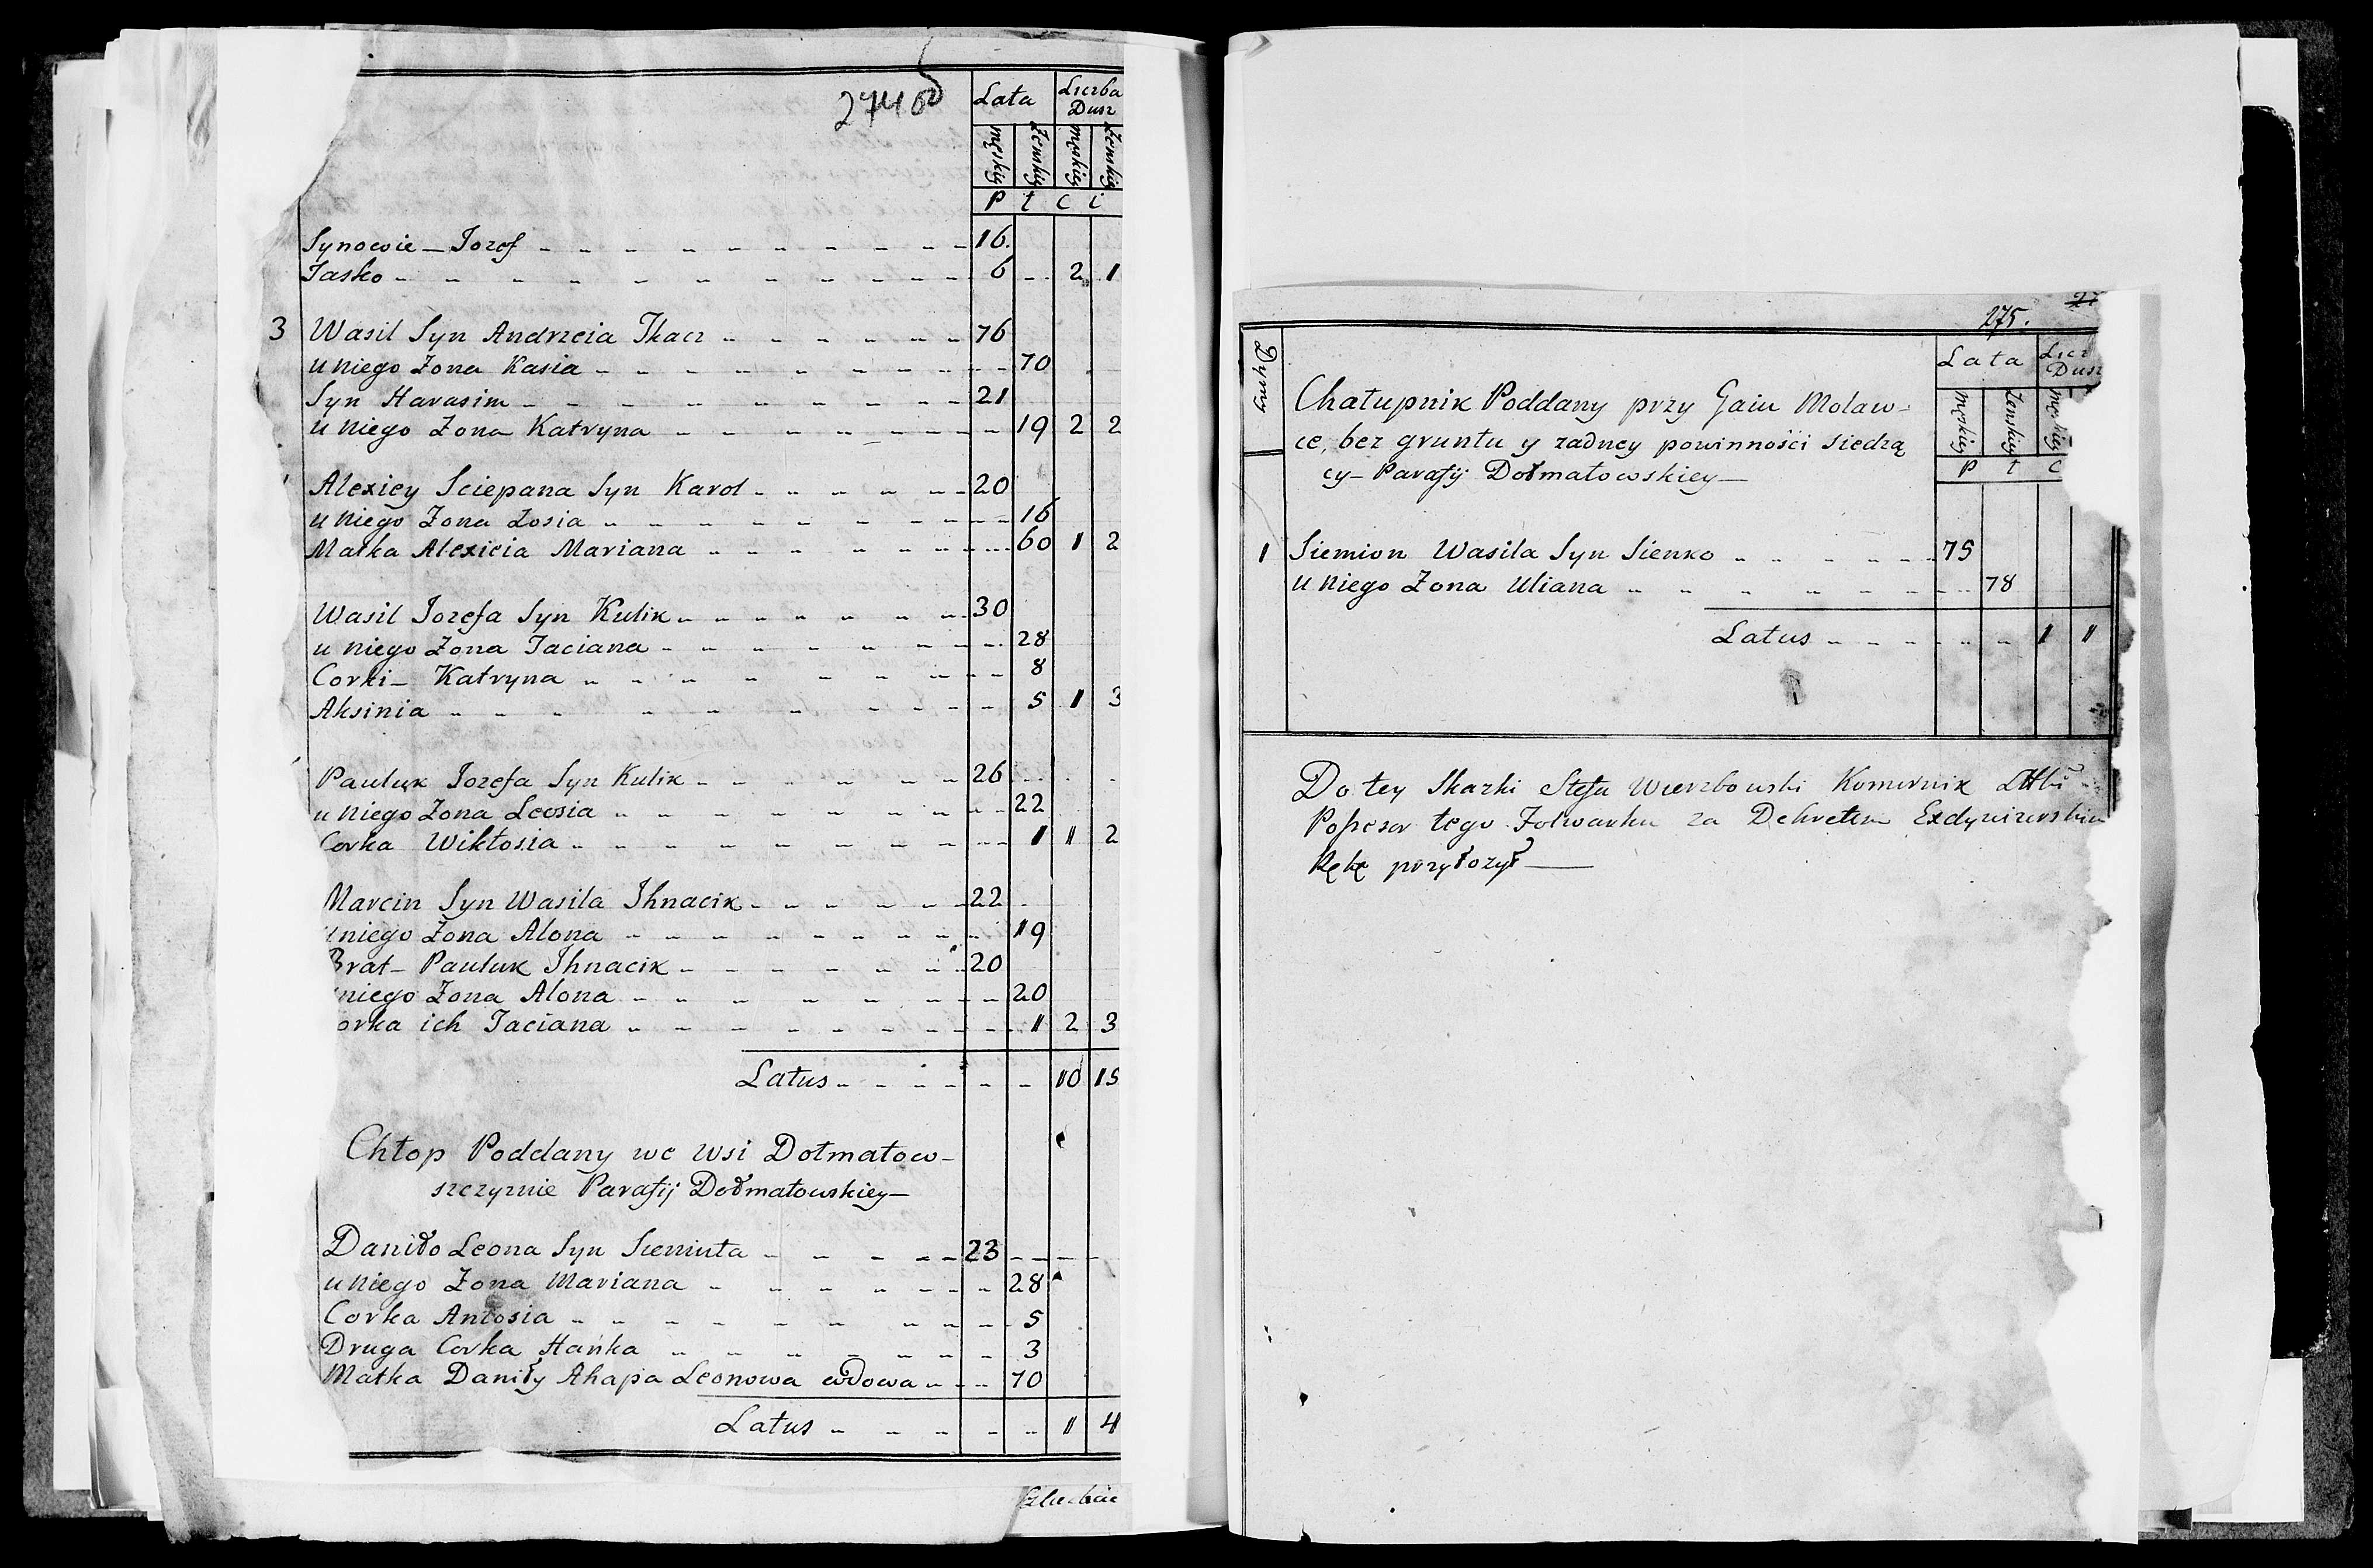 274 об
Lata Liczba Dusz
męskiey Żenskiey męskiey Żenskiey
P t C i
Synowie – Jozef 16.
Jasko 6 2 1
3 Wasil Syn Andrzeia Tkacz 76
u niego Żona Kasia 70
Syn Harasim 21
u niego Żona Katryna 19 2 2
Alexiey Sciepana Syn Karol 20
u niego Żona Zosia 16
Matka Alexieia Mariana 60 1 2
Wasil Jozefa Syn Kulik 30
u niego Żona Taciana 28
Corki – Katryna 8
Aksinia 5 1 3
Pauluk Jozefa Syn Kulik 26
u niego Żona Leosia 22
Corka Wiktosia 1 1 2
Marcin Syn Wasila Ihnacik 22
u niego Żona Alona 19
Brat – Pauluk Ihnacik 20
niego Żona Alona 20
orka ich Taciana 1 2 3
Latus 10 15
Chłop Poddany we wsi Dołmatow-
szczyznie Parafij Dołmatowskiey –
Daniło Leona Syn Sieniuta 23
u niego Żona Mariana 28
Corka Antosia 5
Druga Corka Hańka 3
Matka Daniły Ahapa Leonowa wdowa 70
Latus 1 4
275.
Dymy Lata Licz Dusz
męskiey Żenskiey męskiey
P t C
Chałupnik Poddany przy Gaiu Molaw-
ce, bez gruntu y żadney powinności siedzą
cy – Parafij Dołmatowskiey –
1 Siemion Wasila Syn Sienko 75
u niego Żona Uliana 78
Latus 1 1
Do tey Skazki Stefa Wierzbowski Komornik
Possesor tego Folwarku za Dekretem
Rękę przyłożył –